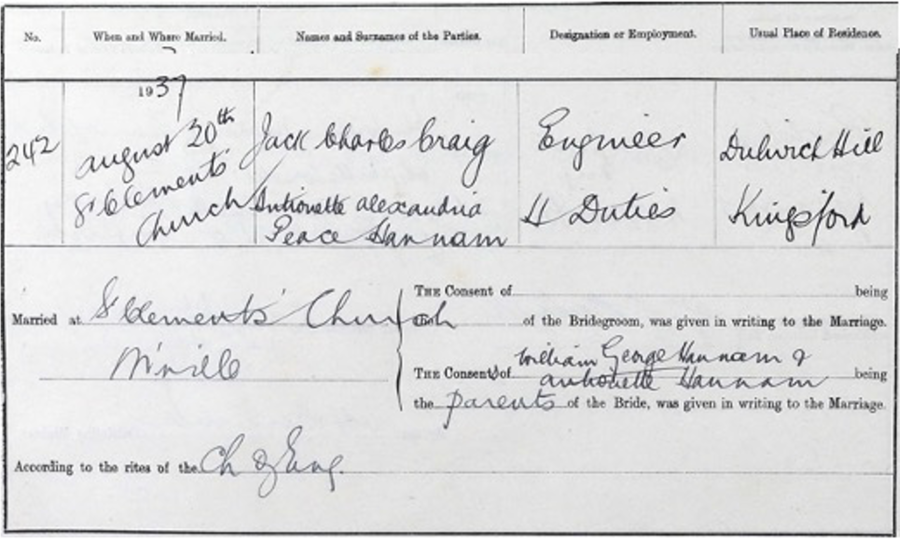 No. When and Where Married. Names and Surnames of the Parties. Designation or Employment. Usual Place of Residence.
1937
242 August 20th Jack Charles Craig Engineer Dulwich Hill
St Clements' Antionette Alexandria H Duties Kingsford
Church Peace Hannam
THE Consent of being
Married at St Clements' Church the of the Bridegroom, was given in writing to the Marriage.
M'ville THE Consent of William George Hannam &
Antionette Hannam being
the parents of the Bride, was given in writing to the Marriage.
According to the rites of the Ch of Eng.